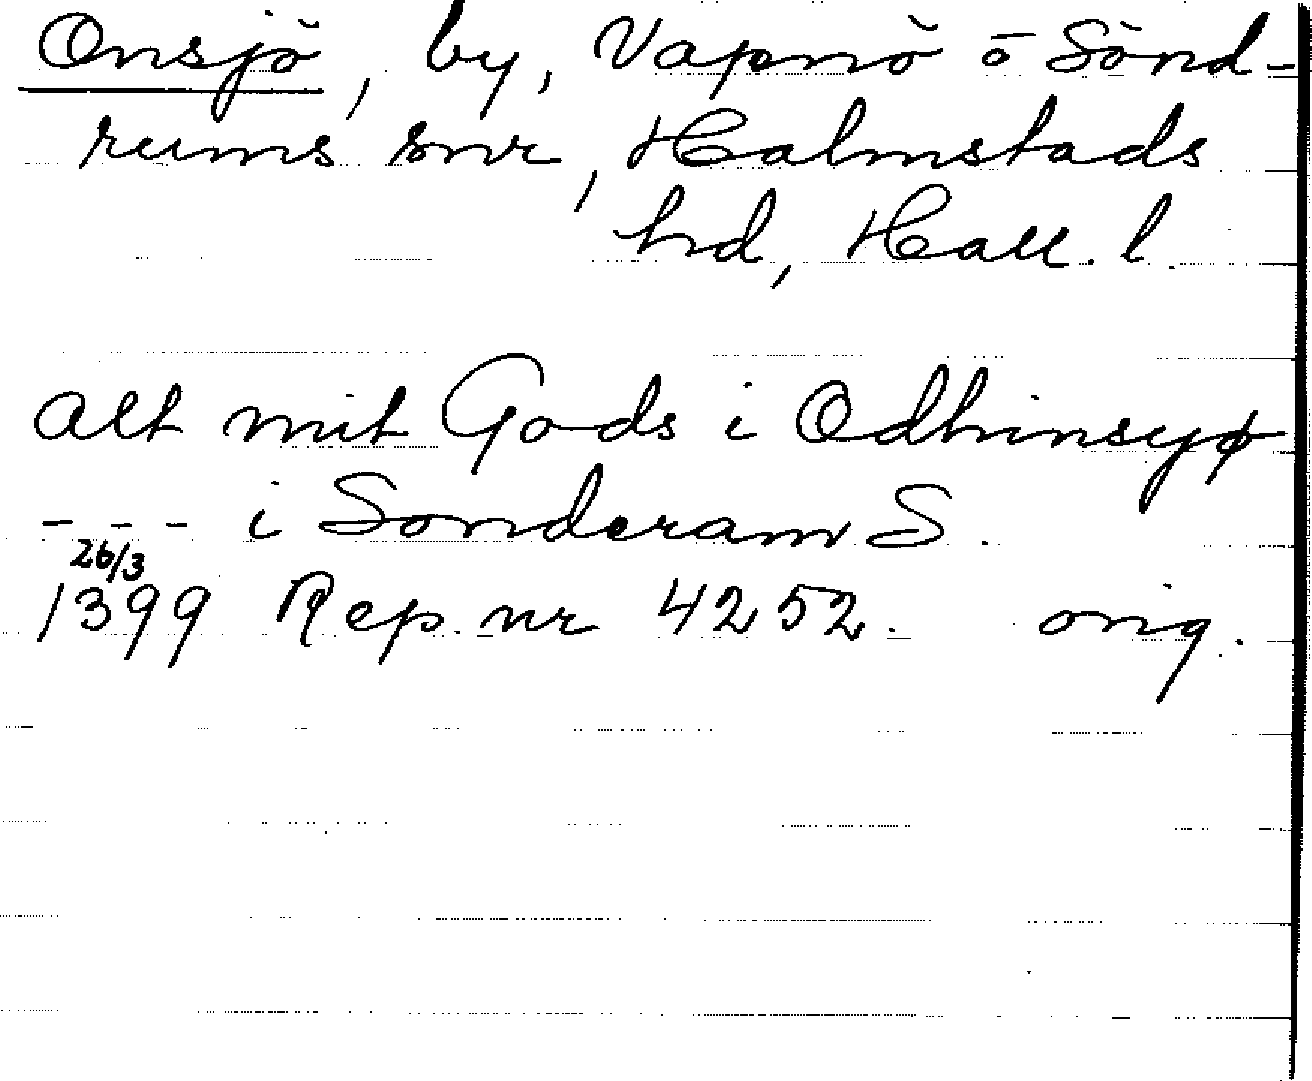 Onsjö, by, Vapnö o Sönd-
rums snr, Halmstads
hd, Hall. l.
alt mit Gods i Odhinsyø
--- i Sonderam S.
26/3
1399 Rep. nr 4252. orig.